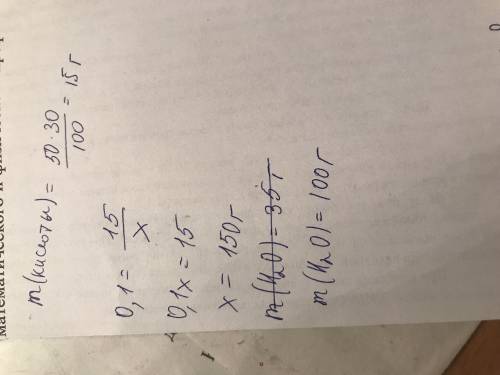 математического и физич
m(кислоты) = 50·30/100 = 15 г
0,1 = 15/x
0,1x = 15
x = 150 г
m(H₂O) = 35 г
m(H₂O) = 100 г